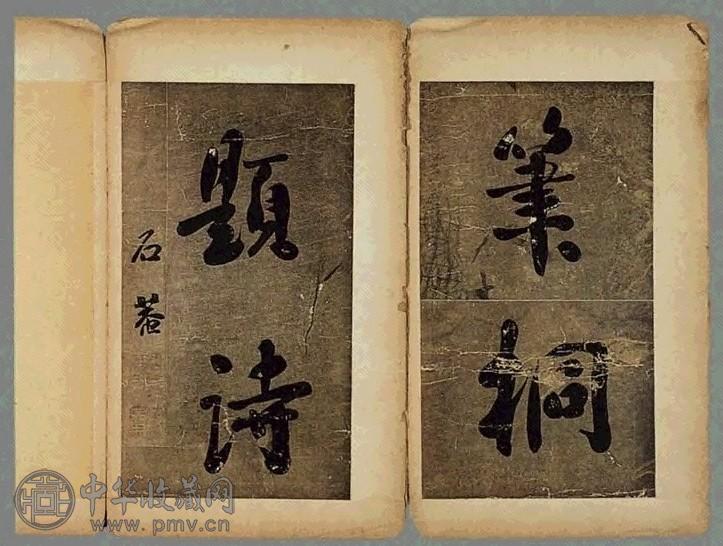 筆
桐
題
詩
石菴
中华收藏网
www.pmv.cn